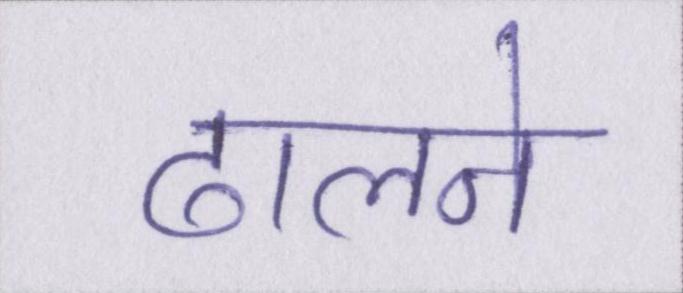 ढालने